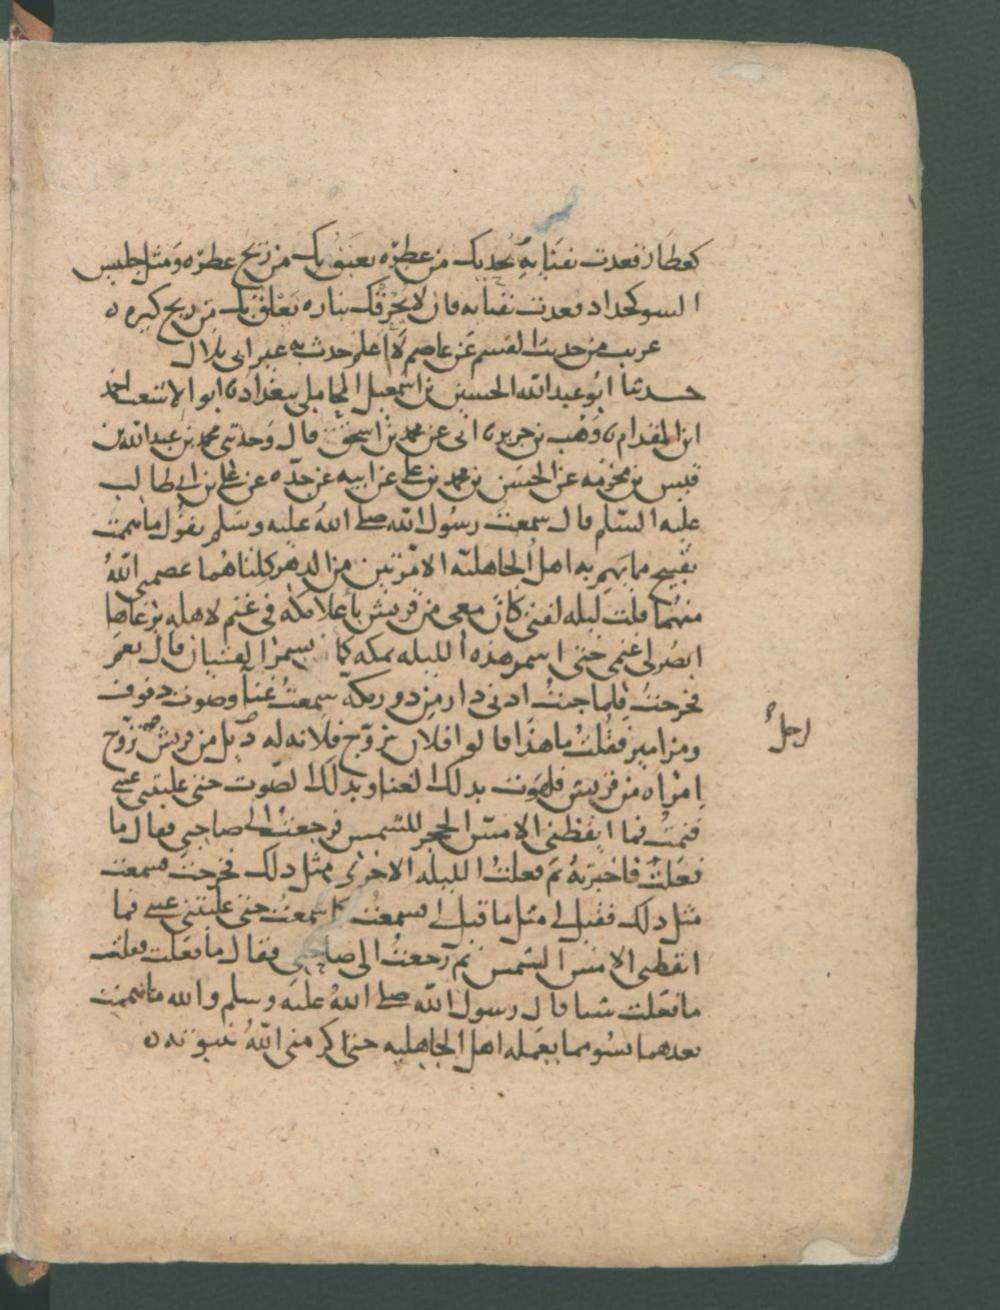 كعطار قعدت بفنائه يُحديك من عطره يعبق بك من ريح عطره ومثل جليس
السو كحداد قعدت بفنائه فان لا يحرقك بناره تعلق بك من ريح كيره ه
غريب من حديث القسم عن عاصم لا اعلم حدث به غير ابي بلال
حدثنا ابو عبد الله الحسين بن اسمعيل المحاملي ببغداد نا ابو الاشعث احمد
ابن المقدام نا وهب بن جرير نا ابي عن محمد بن اسحق قال وحدثني محمد بن عبد الله بن
قيس بن مخرمه عن الحسن بن محمد بن علي عن ابيه عن جده عن علي بن ابي طالب
عليه السلم قال سمعت رسول الله صلى الله عليه وسلم يقول ما هممت
بقبيح مما يهم به اهل الجاهليه الا مرتين من الدهر كلتاهما عصمني الله
منهما قلت ليله لفتى كان معي من قريش باعلا مكه في غنم لاهله يرعاها
ابصر لي غنمي حتى اسمر هذه الليله بمكه كما يسمر الفتيان قال نعم
فخرجت فلما جئت ادنى دار من دور مكة سمعت غنا وصوت دفوف
ومزامير فقلت ما هذا قالوا فلان تزوج فلانه له من قريش تزوج
رجل
امراه من قريش فلهوت بذلك الغنا وبذلك الصوت حتى غلبتني عيني
فنمت فما ايقظني الا مس الحجر للشمس فرجعت الى صاحبي فقال ما
فعلت فاخبرته ثم فعلت الليله الاخرى مثل ذلك فخرجت فسمعت
مثل ذلك فقيل لي مثل ما قيل لي فسمعت كما سمعت حتى غلبتني عيني فما
ايقظني الا مس الشمس ثم رجعت الى صاحبي فقال ما فعلت فقلت
ما فعلت شيا قال رسول الله صلى الله عليه وسلم والله ما هممت
بعدهما بسو مما يعمله اهل الجاهليه حتى اكرمني الله بنبوته ه